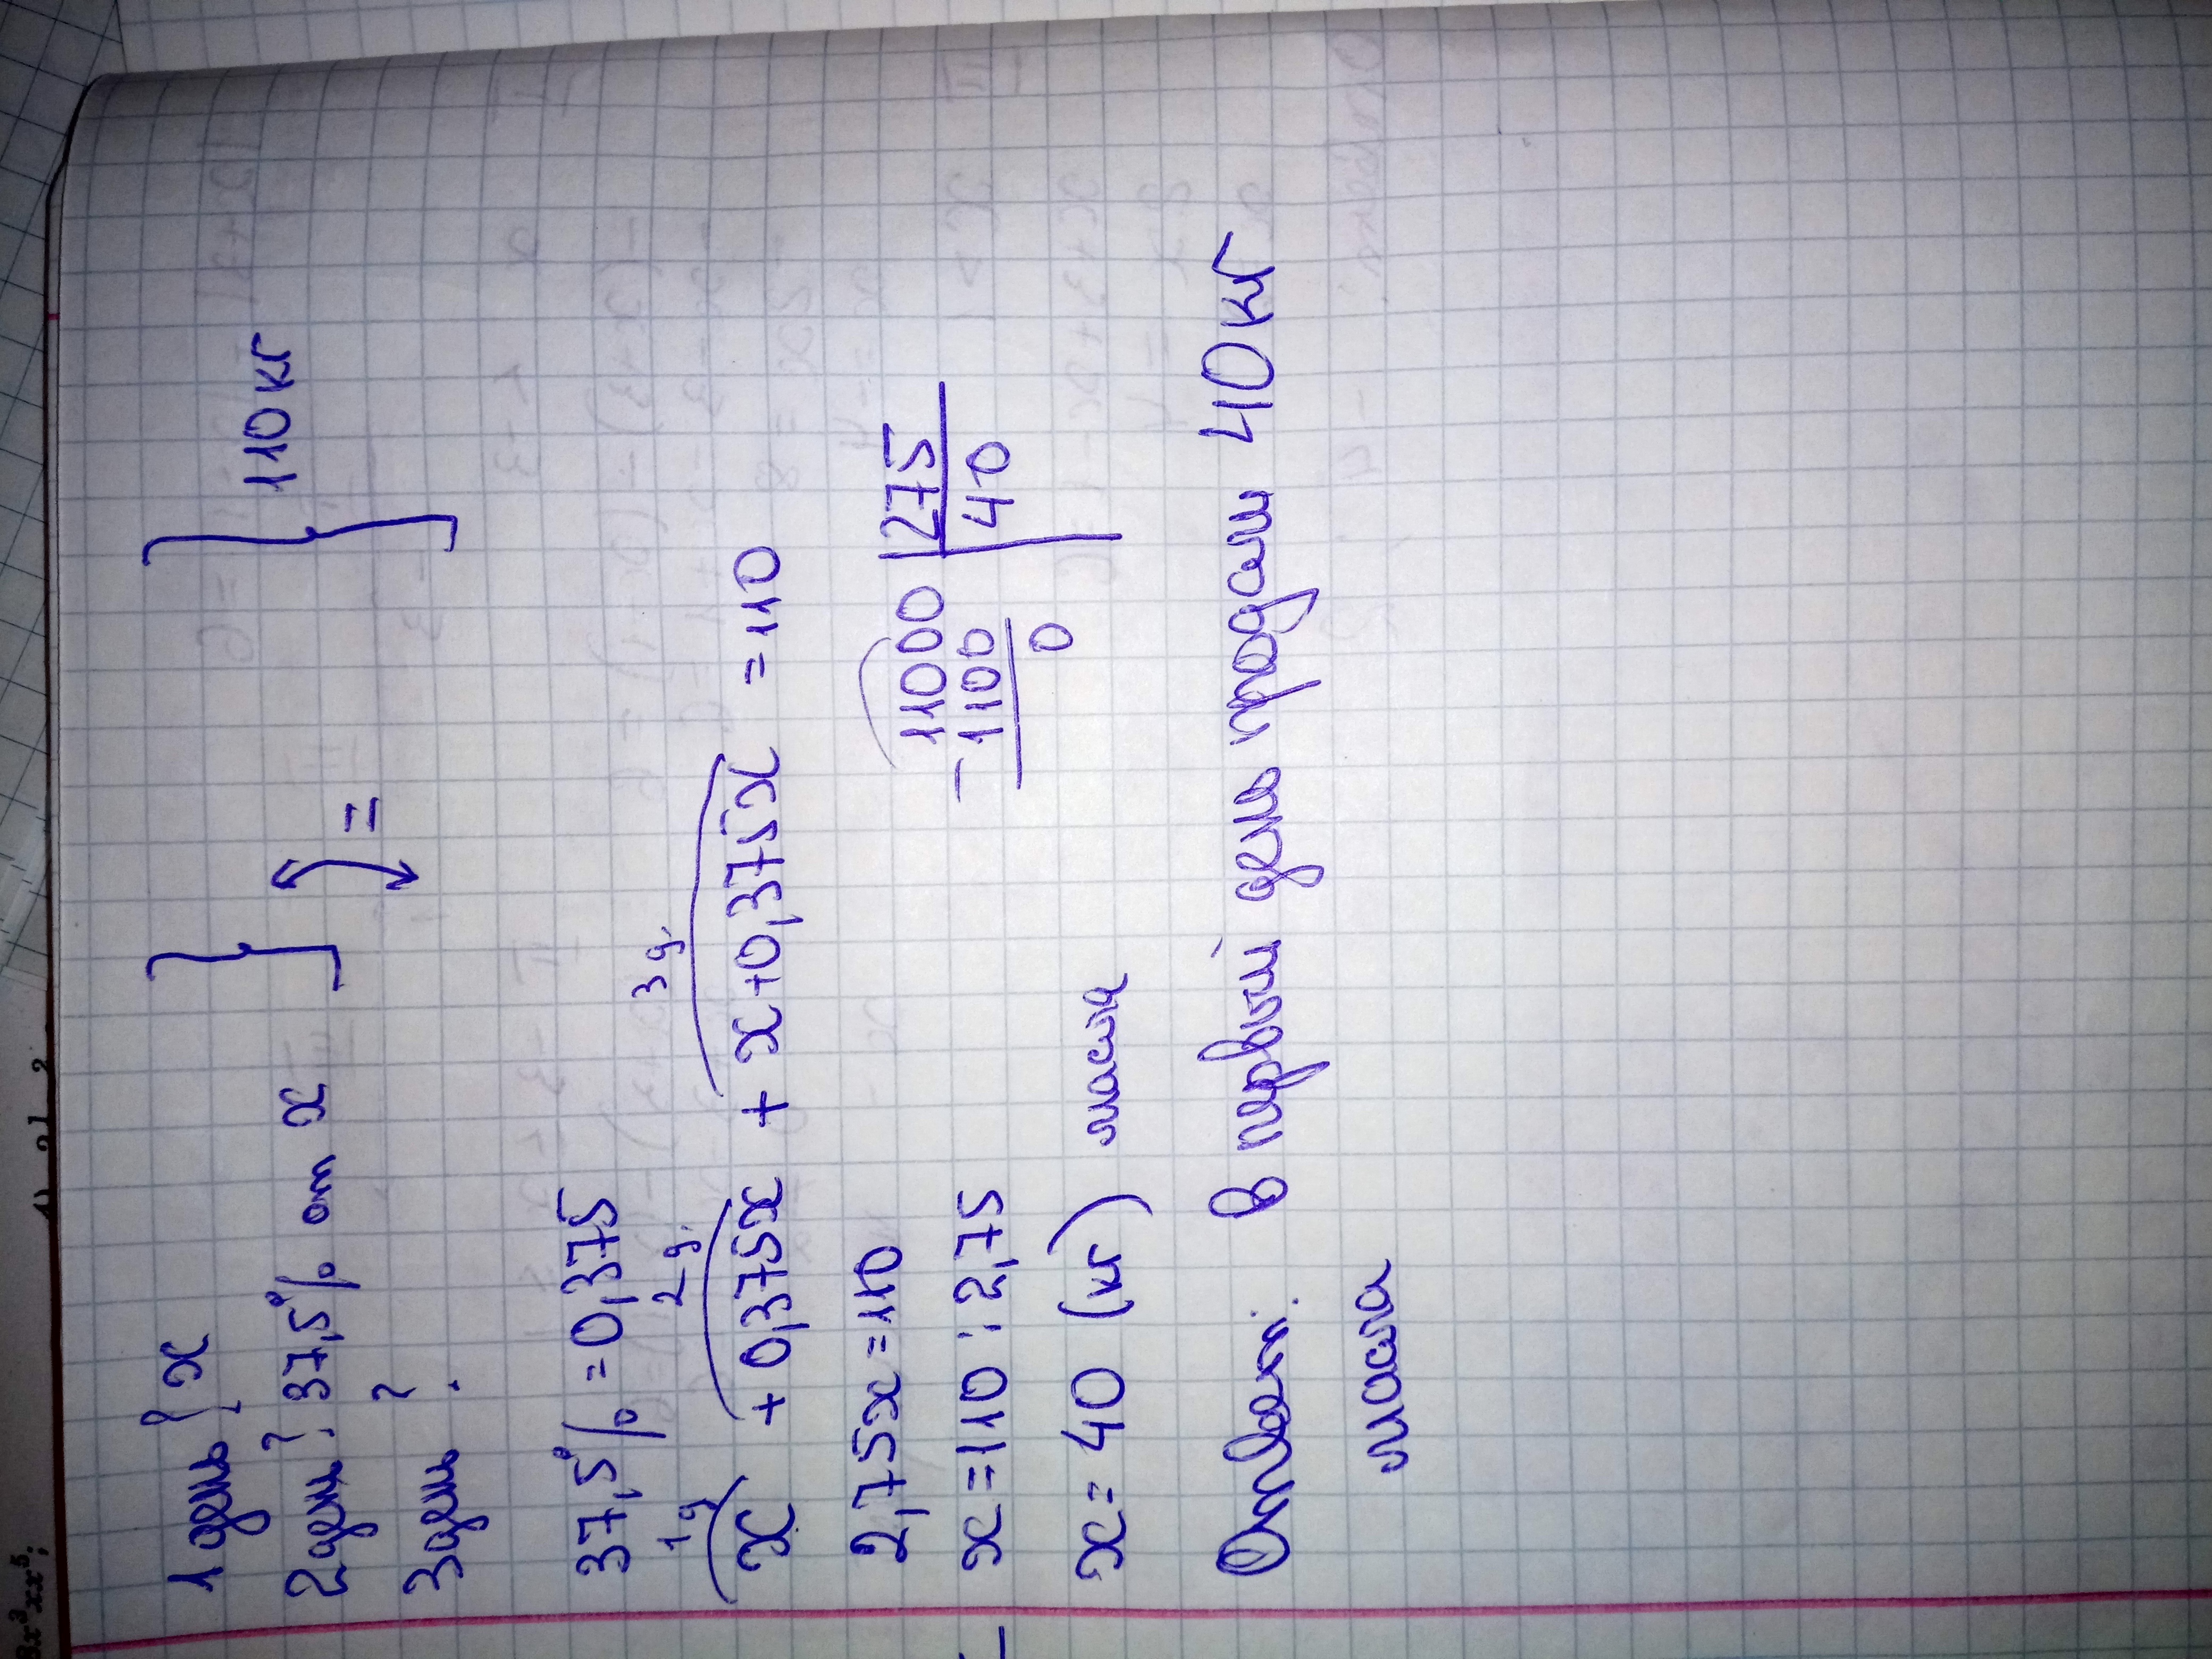 1 день ? x
2 день ? 37,5% от x
3 день ?
=
110 кг
37,5% = 0,375
1 д 2 д. 3 д.
x + 0,375x + x+0,375x = 110
2,75x = 110
x = 110 : 2,75
x = 40 (кг) масла
11000 | 275
- 1100 40
0
Ответ: в первый день продали 40 кг
масла